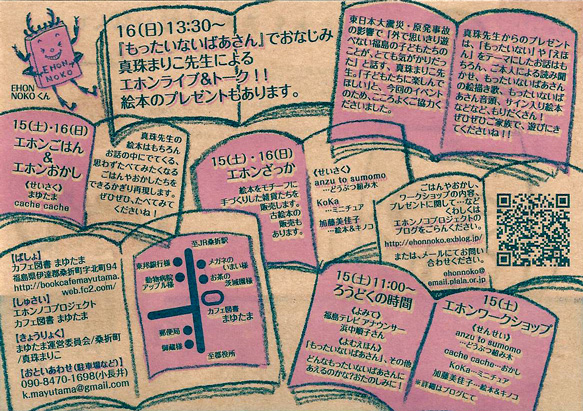 EHON NOKO
EHON
NOKOくん
16(日)13:30〜
『もったいないばあさん』でおなじみ
真珠まりこ先生による
エホンライブ&トーク!!
絵本のプレゼントもあります。
東日本大震災・原発事故
の影響で「外で思いきり遊
べない福島の子どもたちの
ことが、とても気がかりだっ
た」と話す、真珠まりこ先
生。「子どもたちに楽しんで
ほしい」と、今回のイベント
のため、こころよくご協力く
ださいました。
真珠先生からのプレゼント
は、『もったいない』や『えほ
ん』をテーマにしたお話はも
ちろん、ご本人による読み聞
かせ、もったいないばあさん
の絵描き歌、もったいないば
あさん音頭、サイン入り絵本
などなど、もりだくさん!
ぜひぜひご家族で、遊びにき
てくださいね!!
15(土)・16(日)
エホンごはん
&
エホンおかし
《せいさく》
まゆたま
cache cache
真珠先生の
絵本はもちろん
お話の中にでてくる、
思わずたべてみたくなる
ごはんやおかしたちを
できるかぎり再現します。
ぜひぜひ、たべてみて
くださいね!
15(土)・16(日)
エホンざっか
絵本をモチーフに
手づくりした雑貨たちを
販売します。
古絵本の
販売も
あります。
《せいさく》
anzu to sumomo
…どうぶつ組み木
KoKa…ミニチュア
加藤美佳子
…絵本&キノコ
ごはんやおかし、
ワークショップの内容
プレゼントに関して…など
くわしくは
エホンノコプロジェクトの
ブログをごらんください。
http://ehonnoko.exblog.jp/
または、メールにてお問い
合わせください。
ehonnoko@
email.plala.or.jp
【ばしょ】
カフェ図書 まゆたま
福島県伊達郡桑折町字北町94
http://bookcafemayutama.
web.fc2.com/
【しゅさい】
エホンノコプロジェクト
カフェ図書 まゆたま
【きょうりょく】
まゆたま運営委員会/桑折町
/真珠まりこ
【おといあわせ(駐車場など)】
090-8470-1698(小長井)
k.mayutama@gmail.com
至JR桑折駅
東邦銀行様
動物病院
アップル様
メガネの
いまい様
お茶の
茨城園様
カフェ図書
まゆたま
郵便局
御蔵様
至郡役所
15(土)11:00〜
ろうどくの時間
《よみて》
福島テレビアナウンサー
浜中順子さん
《よむえほん》
「もったいないばあさん」、その他
どんなもったいないばあさんに
あえるのかな?おたのしみに!
15(土)
エホンワークショップ
《せんせい》
anzu to sumomo
…どうぶつ組み木
cache cache…おかし
KoKa…ミニチュア
加藤美佳子…絵本&キノコ
※詳細はブログにて